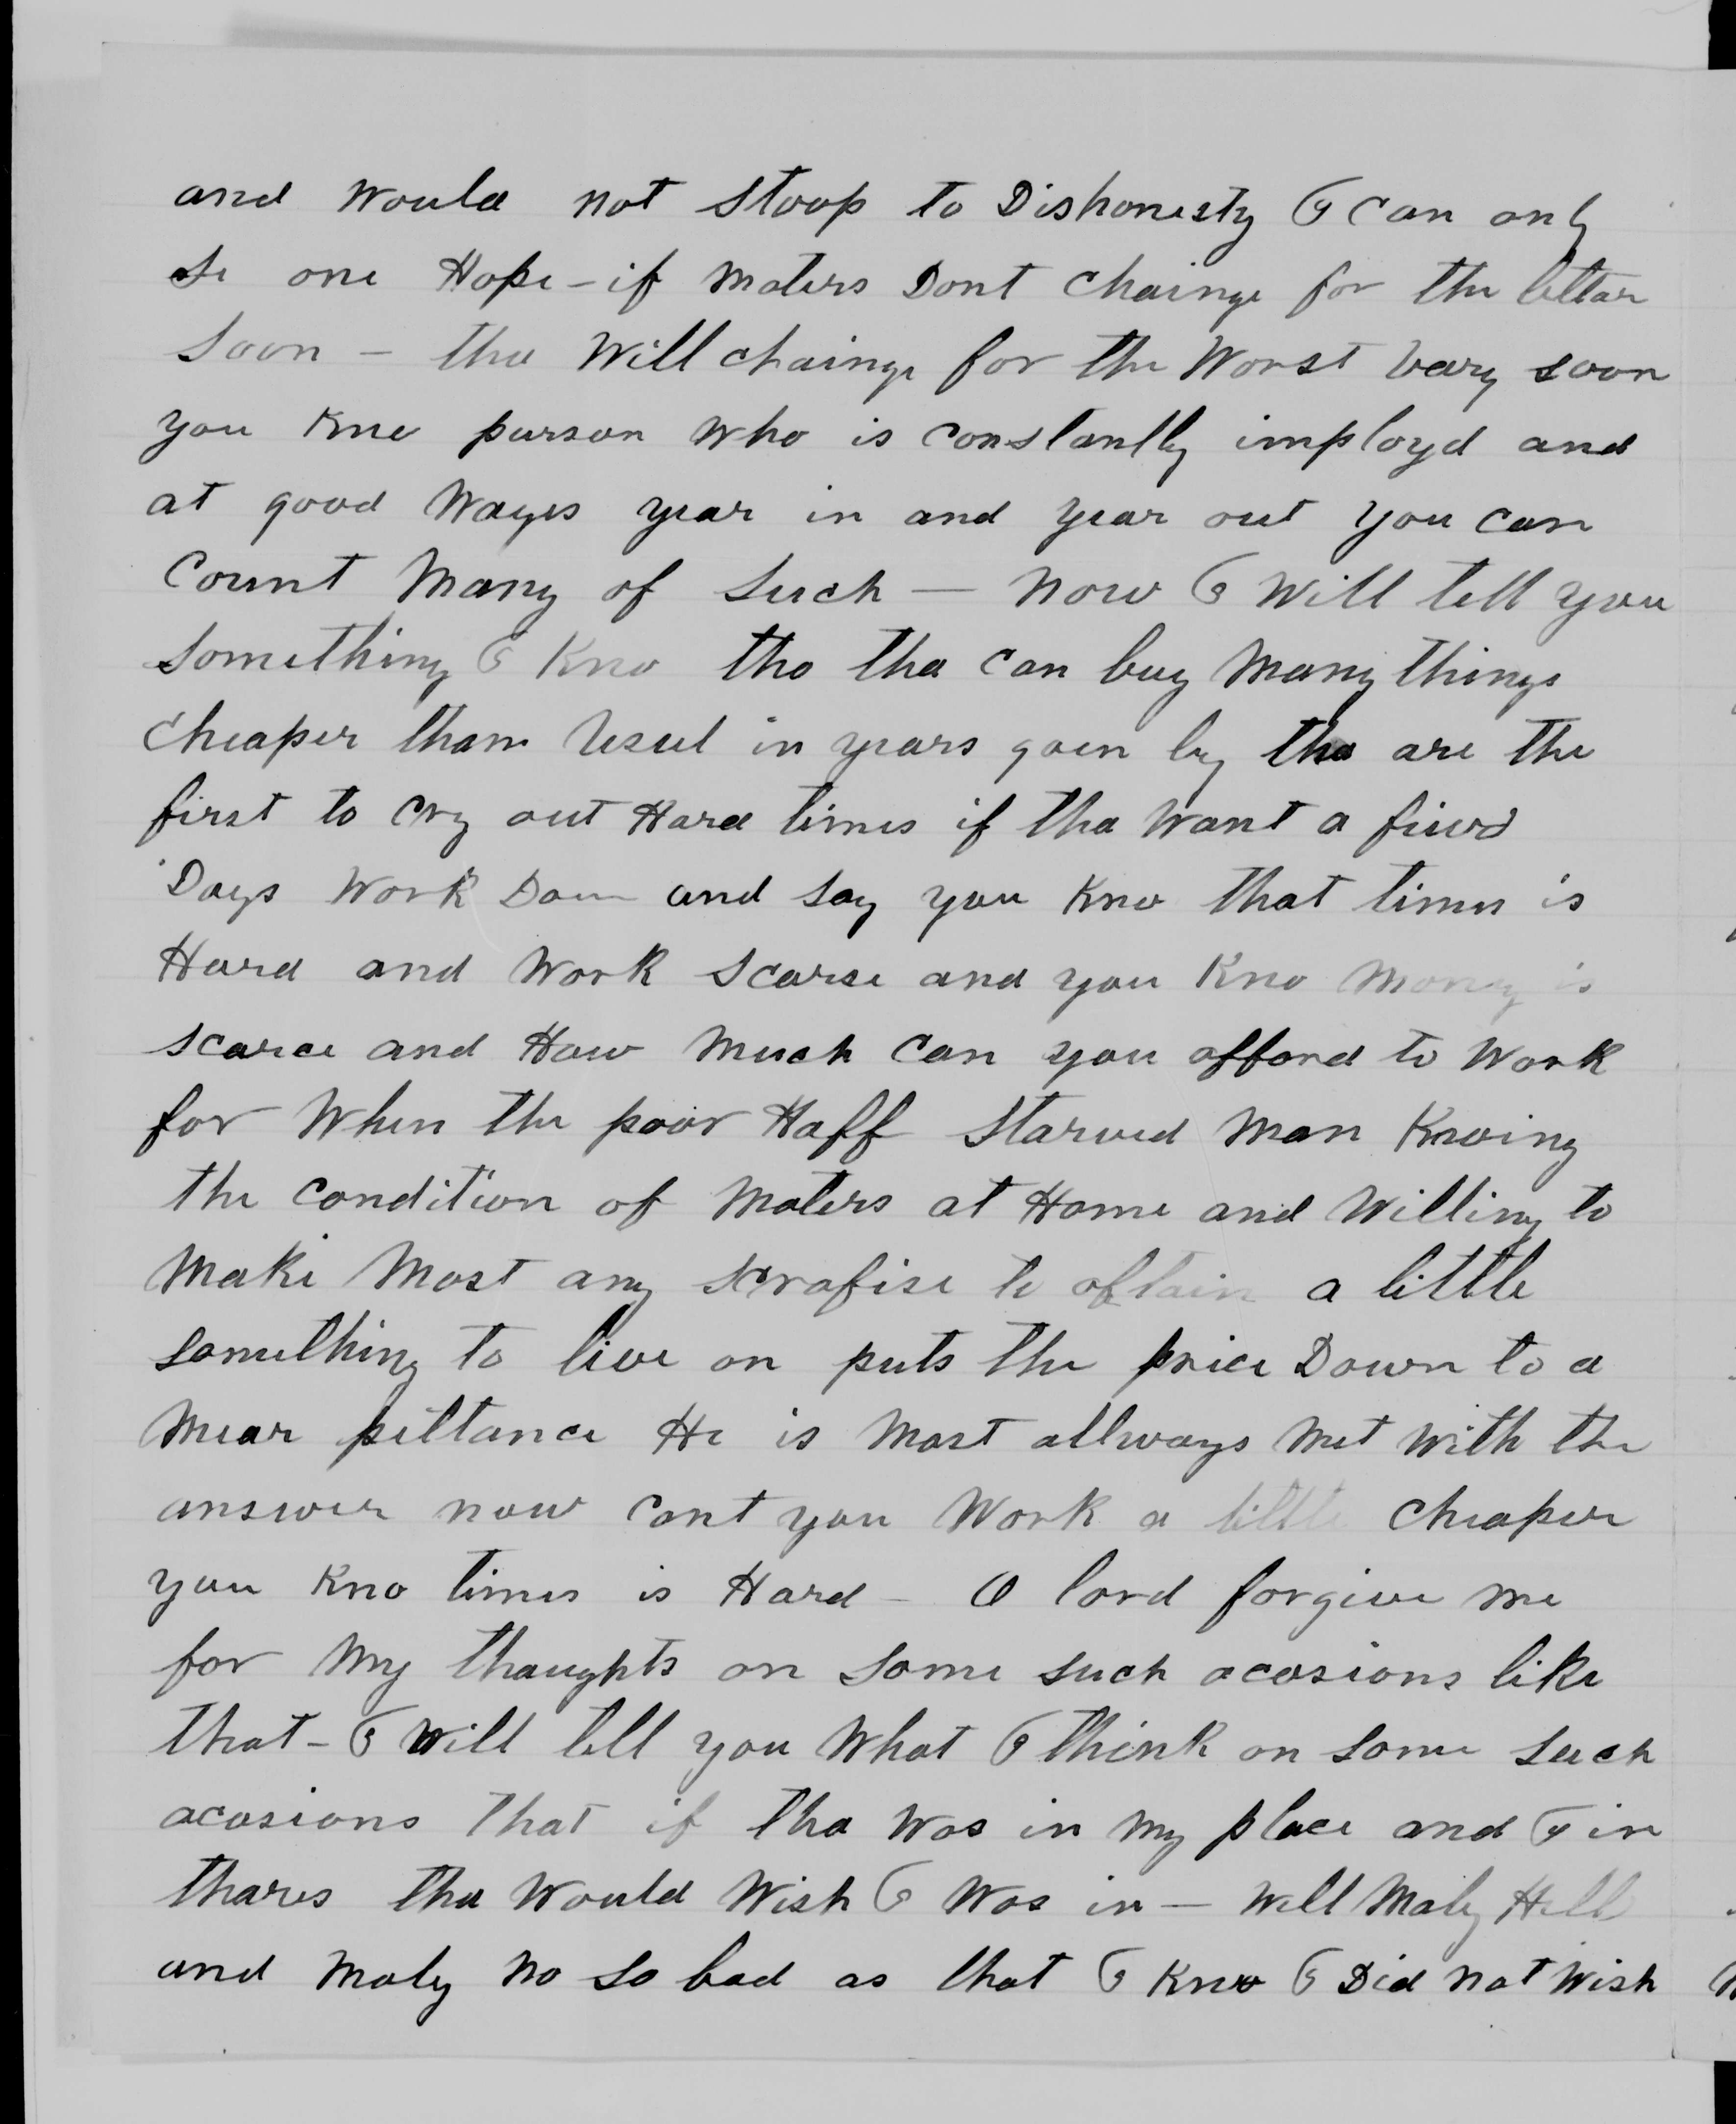 and Would not Stoop to Dishonesty I can only
Se one Hope - if Maters Dont chainge for the bettar
Soon - tha Will chainge for the Worst vary soon
you kno purson Who is constantly imployd and
at good Wages year in and year out you can
Count Many of Such - now I Will tell you
Something I Kno tho tha can buy Many things
Cheaper than Usuel in years goen by tha are the
first to cry out Hard times if tha Want a fiew
Days Work Don and Say you Kno that times is
Hard and Work Scarse and you Kno Money is
scarce and How Much can you afford to Work
for When the poor Haff Starved Man Knoing
the condition of Maters at Home and Willing to
Make Most any scrafise to obtain a little
Something to live on puts the price Down to a
Mear pittance He is Most allways Met With the
answer now cant you Work a little Cheaper
you Kno times is Hard - O lord forgive me
for My thaughts on Some such acasions like
that - I Will tell you What I think on Some Such
acasions that if tha Was in My place and I in
thares tha Would Wish I Was in - Well Maby Hell
and Maby no So bad as that I Kno I Did not Wish